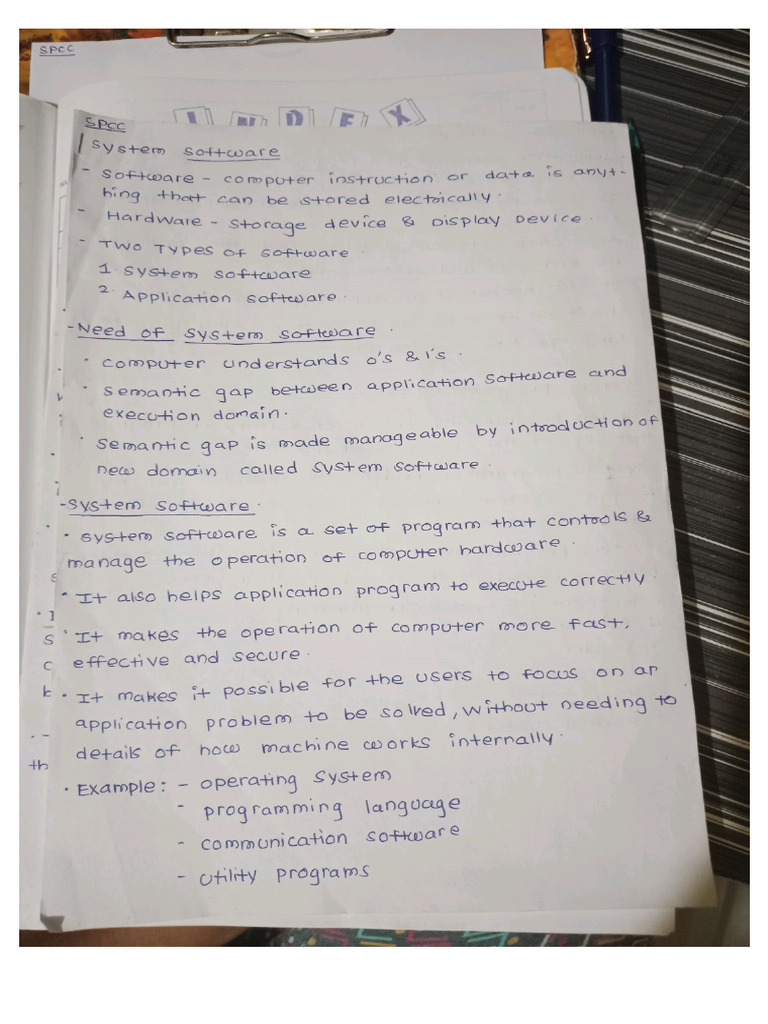 SPCC
INDEX
SPCC
System Software
- Software - computer instruction or data is anyt-
hing that can be stored electrically.
- Hardware - storage device & Display Device.
- Two Types of software.
1. System software
2. Application software.
- Need of system software.
• computer understands 0's & 1's.
• semantic gap between application software and
execution domain.
• semantic gap is made manageable by introduction of
new domain called system software.
- System software.
• system software is a set of program that controls &
manage the operation of computer hardware.
• It also helps application program to execute correctly.
• It makes the operation of computer more fast,
effective and secure.
• It makes it possible for the users to focus on an
application problem to be solved, without needing to
details of how machine works internally.
• Example: - operating system
- programming language
- communication software
- utility programs
th